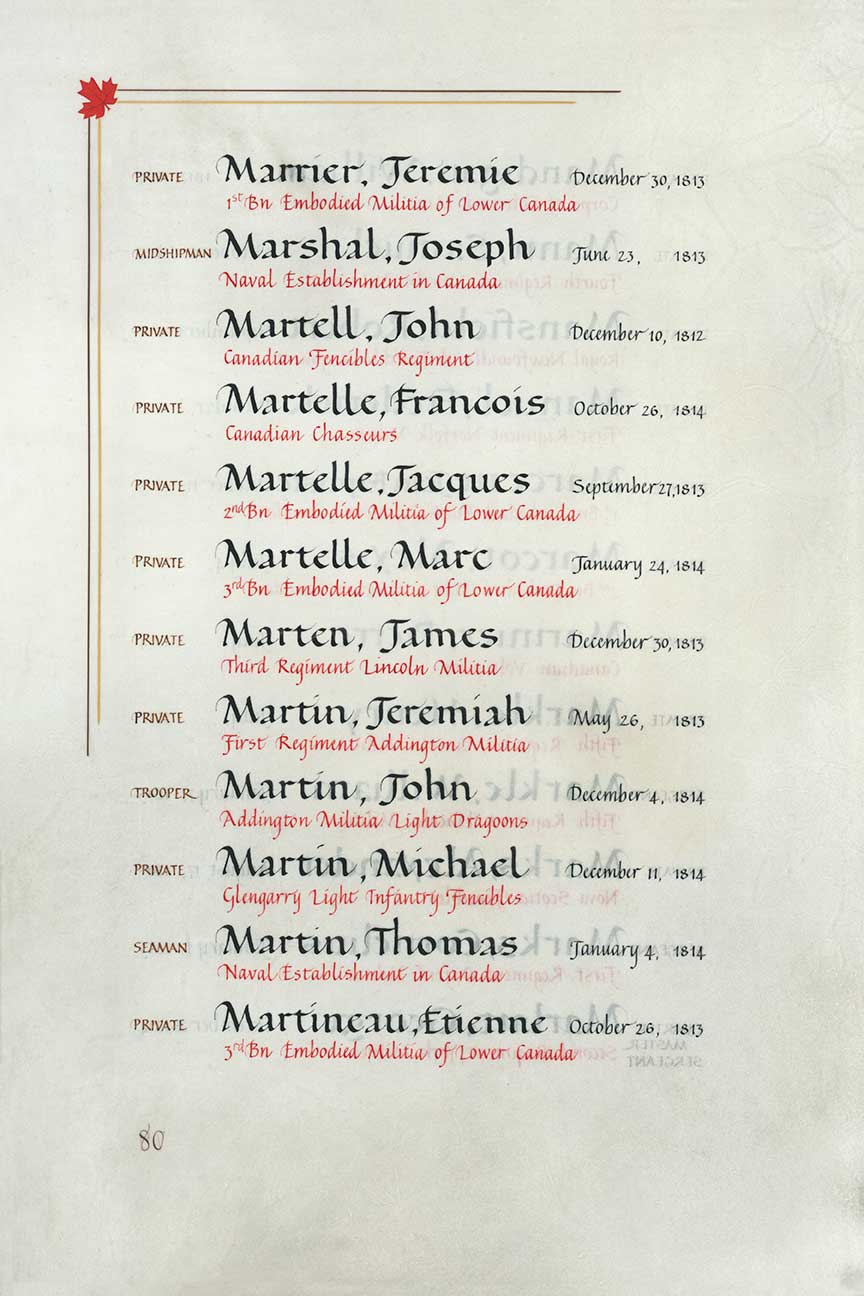 PRIVATE Marrier, Jeremie December 30, 1813
1st Bn Embodied Militia of Lower Canada
MIDSHIPMAN Marshal, Joseph June 23, 1813
Naval Establishment in Canada
PRIVATE Martell, John December 10, 1812
Canadian Fencibles Regiment
PRIVATE Martelle, Francois October 26, 1814
Canadian Chasseurs
PRIVATE Martelle, Jacques September 27, 1813
2nd Bn Embodied Militia of Lower Canada
PRIVATE Martelle, Marc January 24, 1814
3rd Bn Embodied Militia of Lower Canada
PRIVATE Marten, James December 30, 1813
Third Regiment Lincoln Militia
PRIVATE Martin, Jeremiah May 26, 1813
First Regiment Addington Militia
TROOPER Martin, John December 4, 1814
Addington Militia Light Dragoons
PRIVATE Martin, Michael December 11, 1814
Glengarry Light Infantry Fencibles
SEAMAN Martin, Thomas January 4, 1814
Naval Establishment in Canada
PRIVATE Martineau, Etienne October 26, 1813
3rd Bn Embodied Militia of Lower Canada
80